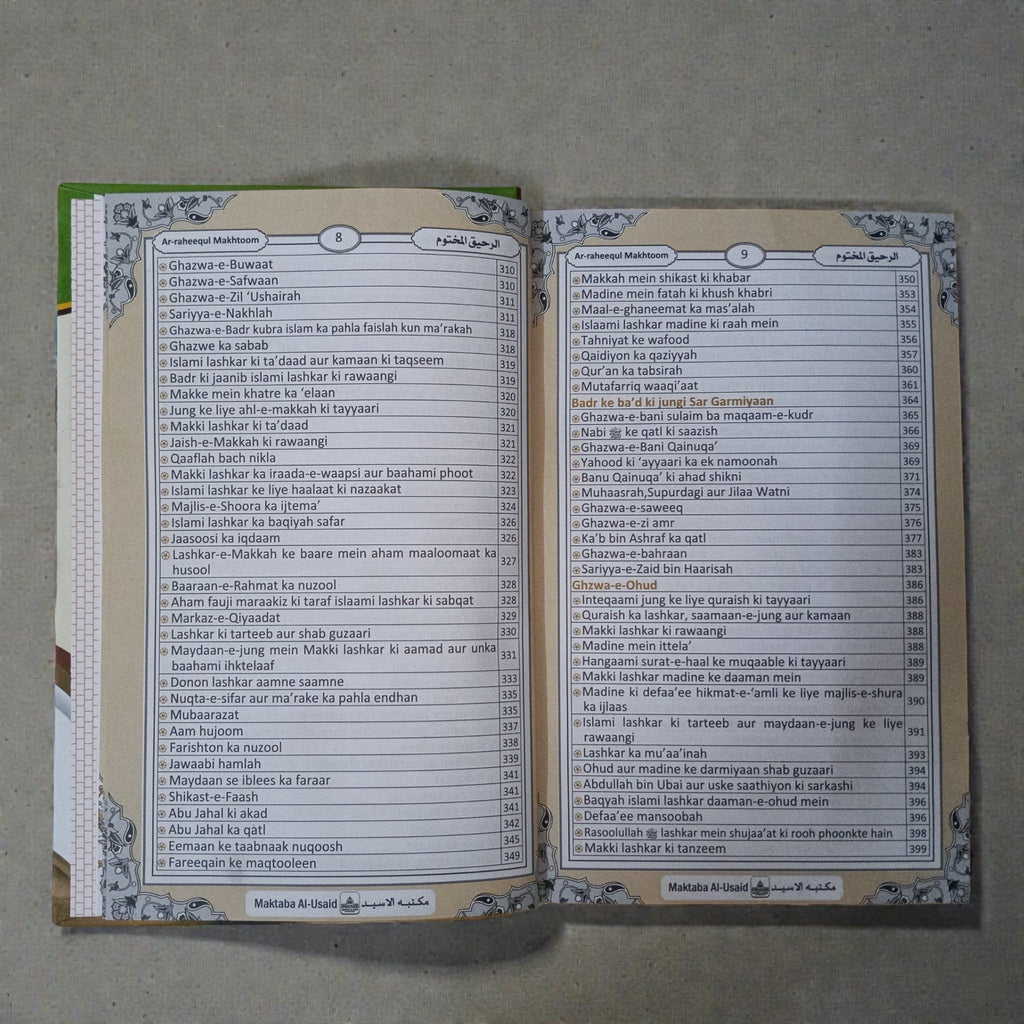 Ar-raheequl Makhtoom 8 الرحيق المختوم
Ghazwa-e-Buwaat 310
Ghazwa-e-Safwaan 310
Ghazwa-e-Zil ‘Ushairah 311
Sariyya-e-Nakhlah 311
Ghazwa-e-Badr kubra islam ka pahla faislah kun ma’rakah 318
Ghazwe ka sabab 318
Islami lashkar ki ta’daad aur kamaan ki taqseem 319
Badr ki jaanib islami lashkar ki rawaangi 319
Makke mein khatre ka ‘elaan 320
Jung ke liye ahl-e-makkah ki tayyaari 320
Makki lashkar ki ta’daad 321
Jaish-e-Makkah ki rawaangi 321
Qaaflah bach nikla 322
Makki lashkar ka iraada-e-waapsi aur baahami phoot 322
Islami lashkar ke liye haalaat ki nazaakat 323
Majlis-e-Shoora ka ijtema’ 324
Islami lashkar ka baqiyah safar 326
Jaasoosi ka iqdaam 326
Lashkar-e-Makkah ke baare mein aham maaloomaat ka
husool 327
Baaraan-e-Rahmat ka nuzool 328
Aham fauji maraakiz ki taraf islaami lashkar ki sabqat 328
Markaz-e-Qiyaadat 329
Lashkar ki tarteeb aur shab guzaari 330
Maydaan-e-jung mein Makki lashkar ki aamad aur unka
baahami ihktelaaf 331
Donon lashkar aamne saamne 333
Nuqta-e-sifar aur ma’rake ka pahla endhan 335
Mubaarazat 335
Aam hujoom 337
Farishton ka nuzool 338
Jawaabi hamlah 339
Maydaan se iblees ka faraar 341
Shikast-e-Faash 341
Abu Jahal ki akad 341
Abu Jahal ka qatl 342
Eemaan ke taabnaak nuqoosh 345
Fareeqain ke maqtooleen 349
Maktaba Al-Usaid مكتبه الاسيد
Ar-raheequl Makhtoom 9 الرحيق المختوم
Makkah mein shikast ki khabar 350
Madine mein fatah ki khush khabri 353
Maal-e-ghaneemat ka mas’alah 354
Islaami lashkar madine ki raah mein 355
Tahniyat ke wafood 356
Qaidiyon ka qaziyyah 357
Qur’an ka tabsirah 360
Mutafarriq waaqi’aat 361
Badr ke ba’d ki jungi Sar Garmiyaan 364
Ghazwa-e-bani sulaim ba maqaam-e-kudr 365
Nabi ﷺ ke qatl ki saazish 366
Ghazwa-e-Bani Qainuqa’ 369
Yahood ki ‘ayyaari ka ek namoonah 369
Banu Qainuqa’ ki ahad shikni 371
Muhaasrah,Supurdagi aur Jilaa Watni 374
Ghazwa-e-saweeq 375
Ghazwa-e-zi amr 376
Ka’b bin Ashraf ka qatl 377
Ghazwa-e-bahraan 383
Sariyya-e-Zaid bin Haarisah 383
Ghzwa-e-Ohud 386
Inteqaami jung ke liye quraish ki tayyaari 386
Quraish ka lashkar, saamaan-e-jung aur kamaan 388
Makki lashkar ki rawaangi 388
Madine mein ittela’ 388
Hangaami surat-e-haal ke muqaable ki tayyaari 389
Makki lashkar madine ke daaman mein 389
Madine ki defaa’ee hikmat-e-‘amli ke liye majlis-e-shura
ka ijlaas 390
Islami lashkar ki tarteeb aur maydaan-e-jung ke liye
rawaangi 391
Lashkar ka mu’aa’inah 393
Ohud aur madine ke darmiyaan shab guzaari 394
Abdullah bin Ubai aur uske saathiyon ki sarkashi 394
Baqyah islami lashkar daaman-e-ohud mein 396
Defaa’ee mansoobah 396
Rasoolullah ﷺ lashkar mein shujaa’at ki rooh phoonkte hain 398
Makki lashkar ki tanzeem 399
Maktaba Al-Usaid مكتبه الاسيد